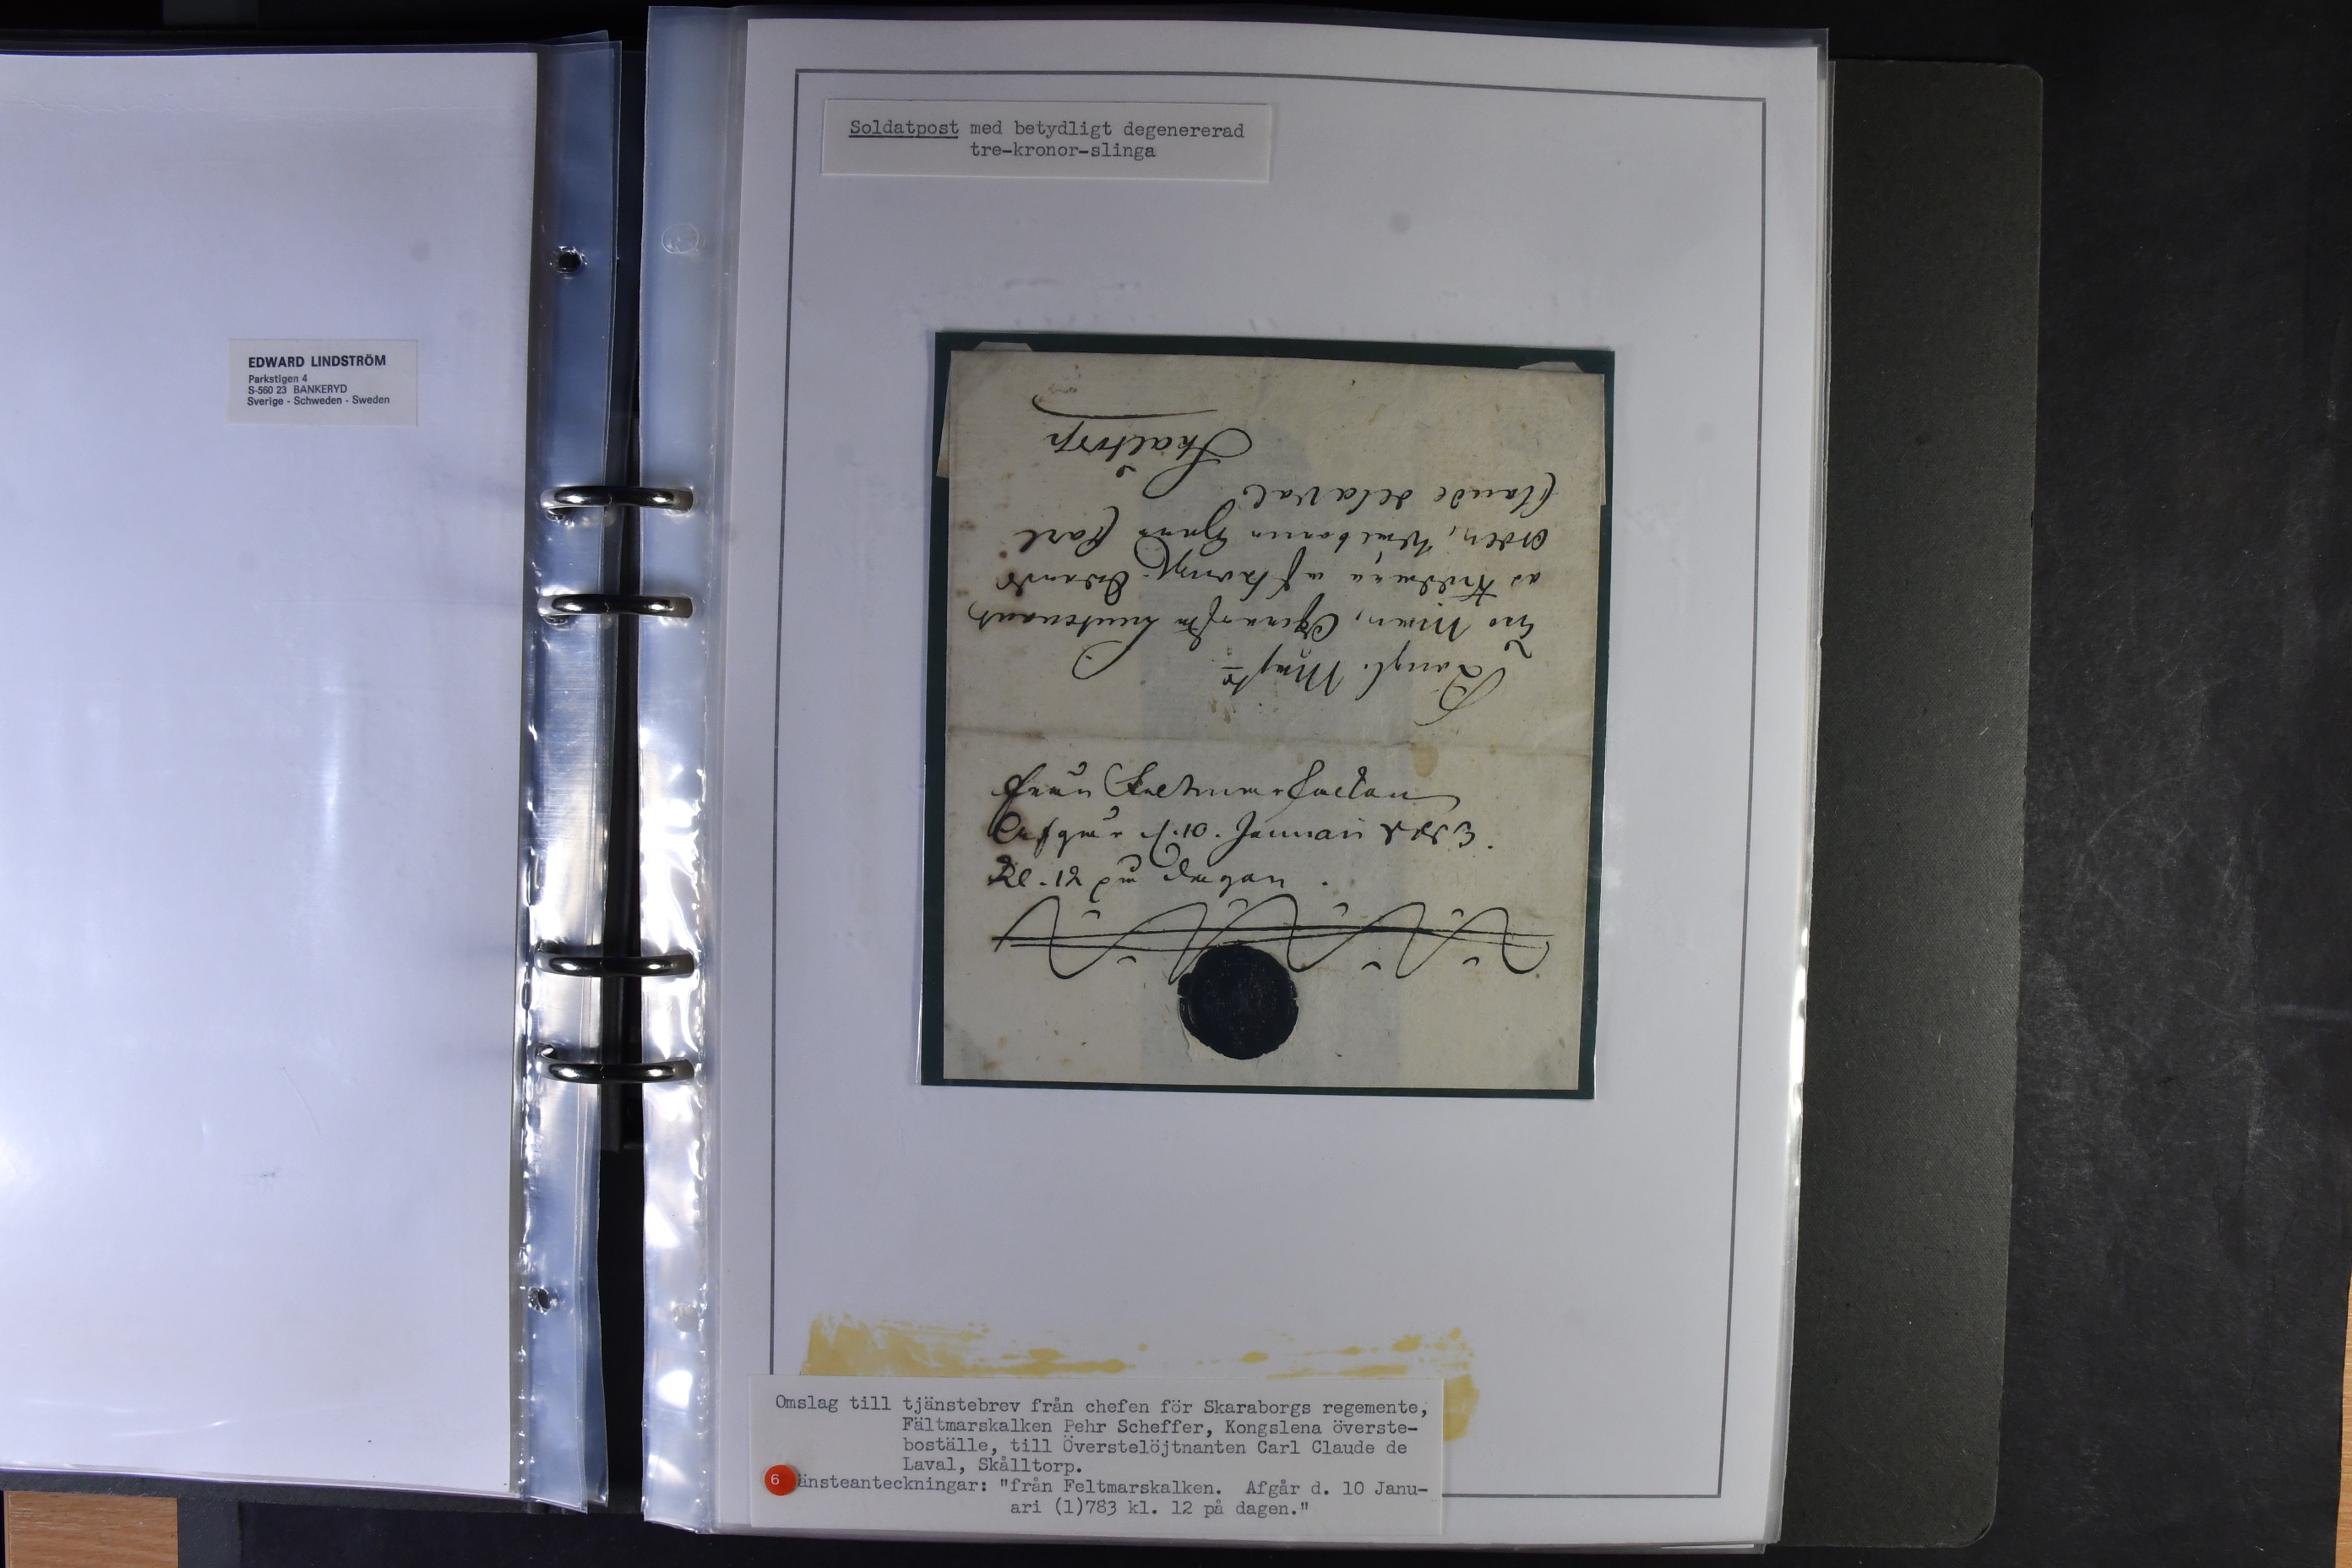 EDWARD LINDSTRÖM
Parkstigen 4
S-560 23 BANKERYD
Sverige - Schweden - Sweden
Soldatpost med betydligt degenererad
tre-kronor-slinga
Skaltorp
Claude de la Val
Orden, Carl
Lieutenant
från Feltmarskalkan
Afgår d. 10. Januari
Kl. 12 på dagen.
Omslag till tjänstebrev från chefen för Skaraborgs regemente,
Fältmarskalken Pehr Scheffer, Kongslena överste-
boställe, till Överstelöjtnanten Carl Claude de
Laval, Skålltorp.
6 änsteanteckningar: "från Feltmarskalken. Afgår d. 10 Janu-
ari (1)783 kl. 12 på dagen."